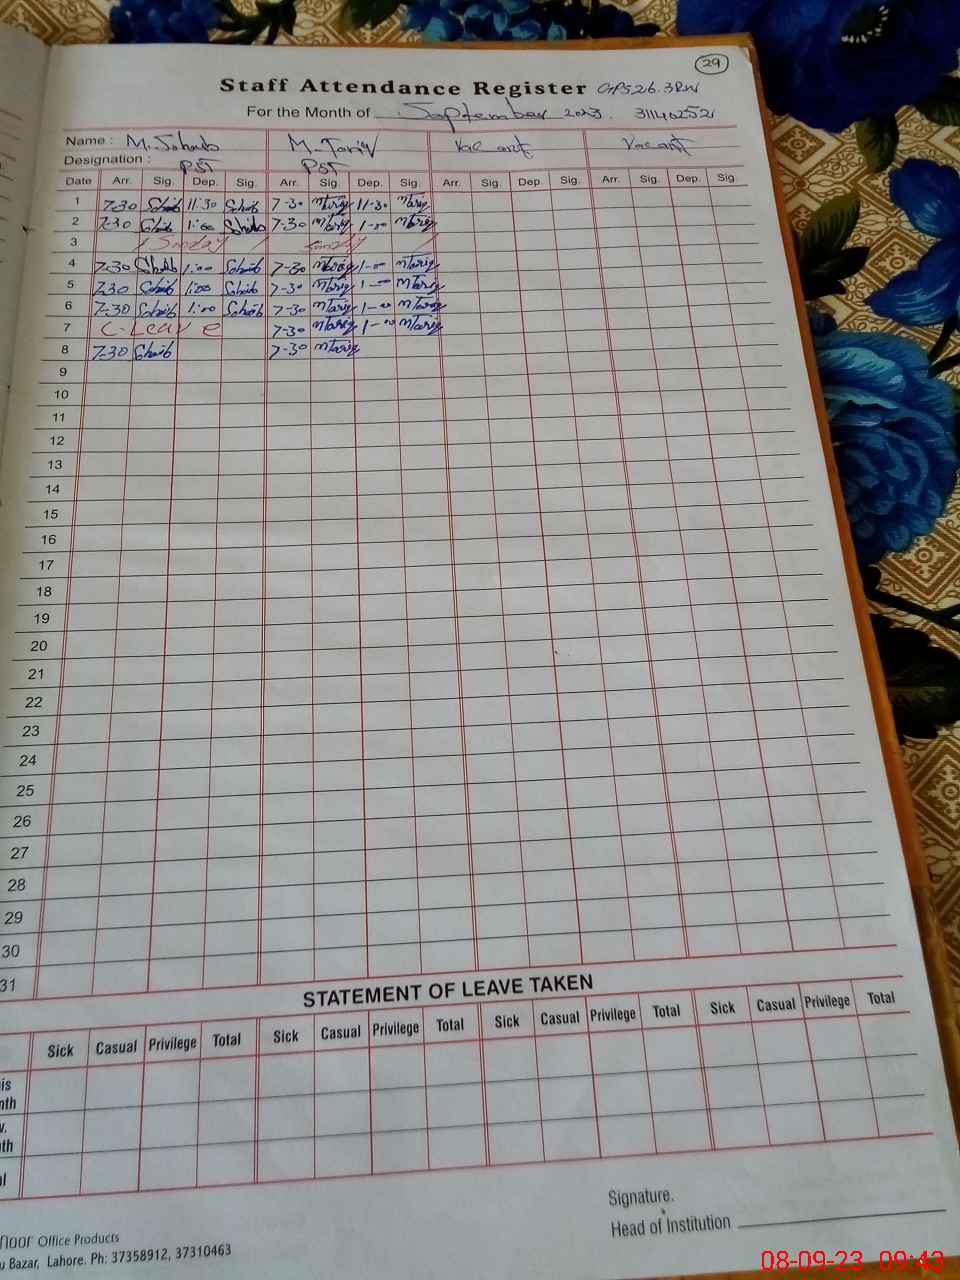 29
Staff Attendance Register GPS 26.3RW
For the Month of September 2023. 31140252
Name : M. Sohaib M. Tariq Vacant Vacant
Designation : PST PST
Date Arr. Sig. Dep. Sig. Arr. Sig. Dep. Sig. Arr. Sig. Dep. Sig. Arr. Sig. Dep. Sig.
1 7-30 Sohaib 11:30 Sohaib 7-30 MTariq 11-30 MTariq
2 7-30 Sohaib 1:00 Sohaib 7-30 MTariq 1-00 MTariq
3 Sunday Sunday
4 7-30 Sohaib 1:00 Sohaib 7-30 MTariq 1-00 MTariq
5 7-30 Sohaib 1:00 Sohaib 7-30 MTariq 1-00 MTariq
6 7-30 Sohaib 1:00 Sohaib 7-30 MTariq 1-00 MTariq
7 C-Leave 7-30 MTariq 1-00 MTariq
8 7-30 Sohaib 7-30 MTariq
9
10
11
12
13
14
15
16
17
18
19
20
21
22
23
24
25
26
27
28
29
30
31
STATEMENT OF LEAVE TAKEN
Sick Casual Privilege Total Sick Casual Privilege Total Sick Casual Privilege Total Sick Casual Privilege Total
is
nth
v.
nth
l
Signature.
Head of Institution
noor Office Products
u Bazar, Lahore. Ph: 37358912, 37310463
08-09-23 09:43